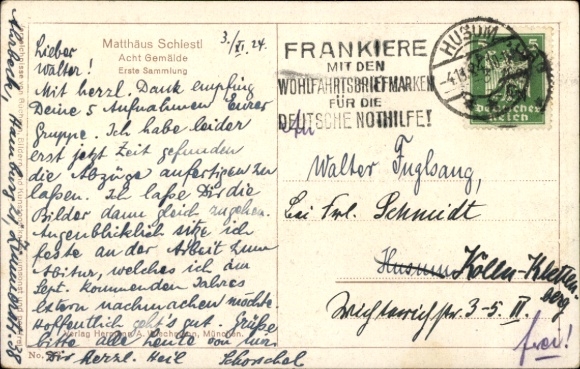 3./XI. 24.
Matthäus Schiestl
Acht Gemälde
Erste Sammlung
Lieber
Walter!
Mit herzl. Dank empfing
Deine 5 Aufnahmen Eurer
Gruppe. Ich habe leider
erst jetzt Zeit gefunden
die Abzüge anfertigen zu
laßen. Ich laße Dir die
Bilder dann gleich zugehen.
Augenblicklich sitze ich
feste an der Arbeit zum
Abitur, welches ich im
Sept. kommenden Jahres
extern nachmachen möchte.
Hoffentlich geht's gut. Grüße
bitte alle heute von mir
Verlag Hermann A. Wiechmann, München.
No.
Dir herzl. Heil
Hamburg
38
FRANKIERE
MIT DEN
WOHLFAHRTSBRIEFMARKEN
FÜR DIE
DEUTSCHE NOTHILFE!
HUSUM
5
Deutsches
Reich
Walter Fuglsang,
bei Frl. Schmidt
Husum Kölln-Kletten
berg
3-5 II.
frei!